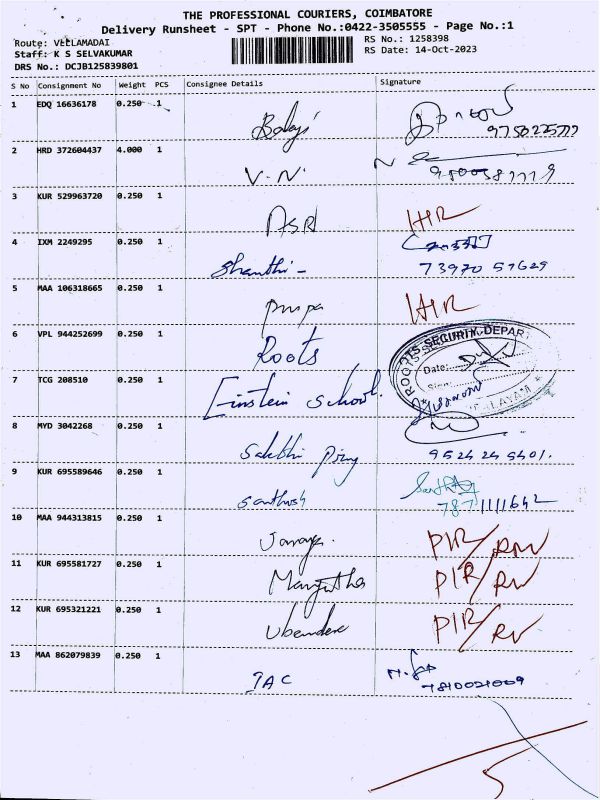 THE PROFESSIONAL COURIERS, COIMBATORE
Delivery Runsheet - SPT - Phone No.:0422-3505555 - Page No.:1
Route: VEELAMADAI RS No.: 1258398
Staff: K S SELVAKUMAR RS Date: 14-Oct-2023
DRS No.: DCJB125839801
S No Consignment No Weight PCS Consignee Details Signature
1 EDQ 16636178 0.250 1
Balaji
2 HRD 372604437 4.000 1
V.N.
3 KUR 529963720 0.250 1
HIR
4 IXM 2249295 0.250 1
Shanthi - 73970 57629
5 MAA 106318665 0.250 1
HIR
6 VPL 944252699 0.250 1
Roots ROOTS SECURITY DEPAR
Date:
7 TCG 208510 0.250 1
Einstein School.
8 MYD 3042268 0.250 1
Sakthi 9524245401.
9 KUR 695589646 0.250 1
Santhosh 787 1111642
10 MAA 944313815 0.250 1
PIR/RN
11 KUR 695581727 0.250 1
Manjutha PIR/RN
12 KUR 695321221 0.250 1
PIR/RN
13 MAA 862079839 0.250 1
IAC 7810021009